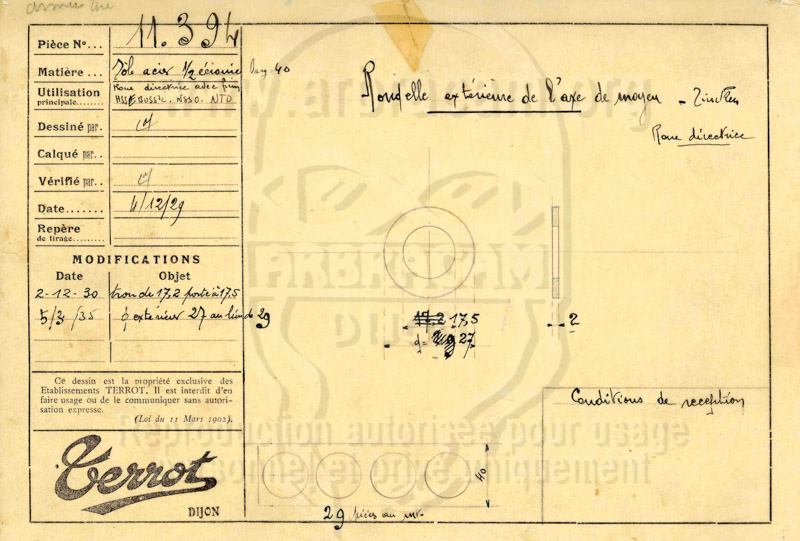 Pièce N°... 11.394
Matière... Tôle acier 1/2 écrouie larg. 40
Utilisation principale... Roue directrice avec frein
HSSE NSSO. NTD
Dessiné par.
Calqué par..
Vérifié par..
Date....... 4/12/29
Repère de tirage.........
MODIFICATIONS
Date Objet
2-12-30 trou de 17,2 porté à 17,5
5/3/35 extérieur 27 au lieu de 29
Ce dessin est la propriété exclusive des
Etablissements TERROT. Il est interdit d'en
faire usage ou de le communiquer sans autori-
sation expresse.
(Loi du 11 Mars 1902).
Terrot
DIJON
Rondelle extérieure de l'axe de moyeu
Roue directrice
17,2 17,5
d= 27
2
Conditions de reception
40
29 pièces au m.
www.arbracam.org
ARBRACAM
DIJON
Reproduction autorisée pour usage
personnel et privé uniquement